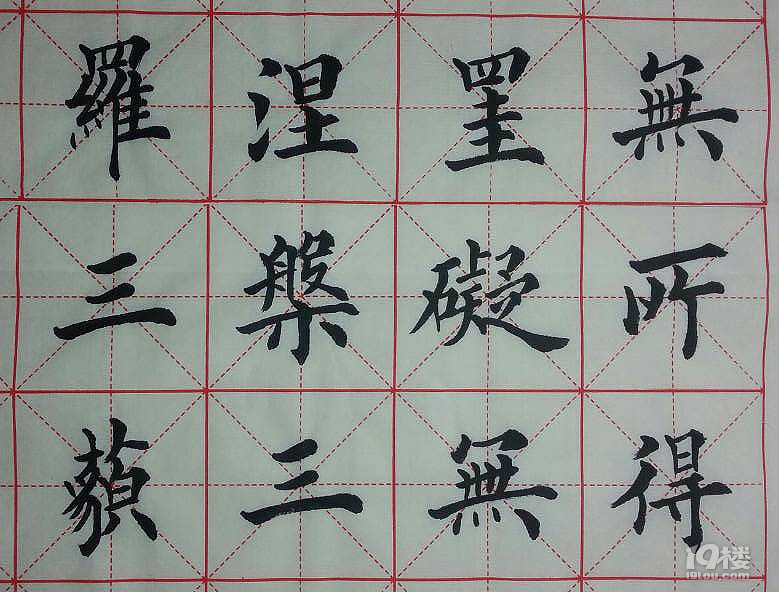 無所得
罣礙無
涅槃三
羅三藐
19楼
19lou.com